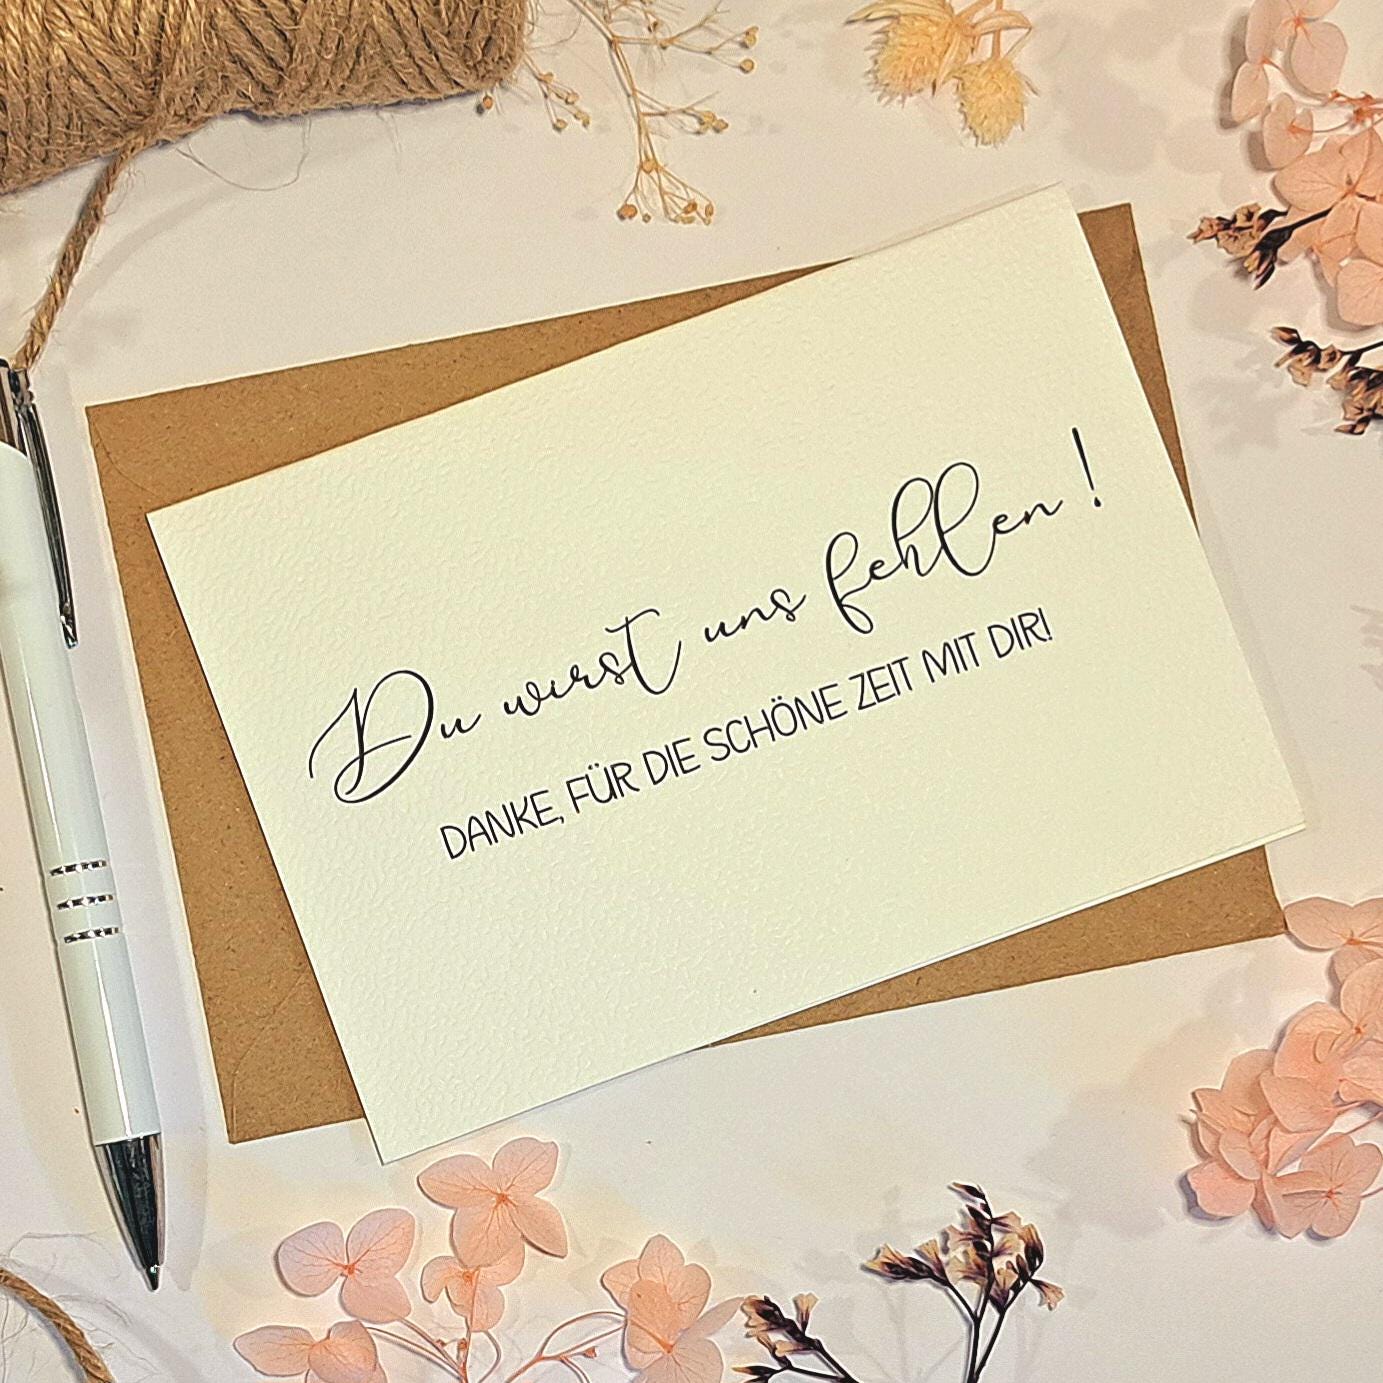 Du wirst uns fehlen !
DANKE, FÜR DIE SCHÖNE ZEIT MIT DIR!